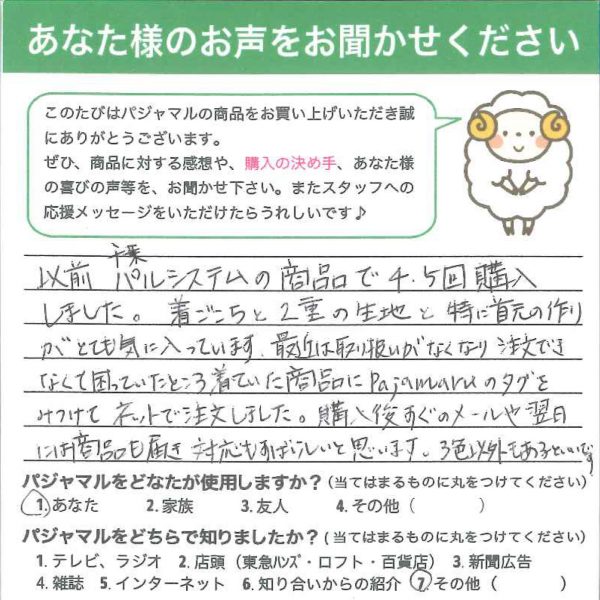 あなた様のお声をお聞かせください
このたびはパジャマルの商品をお買い上げいただき誠
にありがとうございます。
ぜひ、商品に対する感想や、購入の決め手、あなた様
の喜びの声等を、お聞かせ下さい。またスタッフへの
応援メッセージをいただけたらうれしいです♪
千葉
以前 パルシステムの商品で4.5回購入
しました。着ごこちと2重の生地と特に首元の作り
がとても気に入っています。最近は取り扱いがなくなり注文でき
なくて困っていたところ着ていた商品にPajamaruのタグを
みつけてネットで注文しました。購入後すぐのメールや翌日
には商品も届き対応もすばらしいと思います。3色以外もあるといいです
パジャマルをどなたが使用しますか？(当てはまるものに丸をつけてください)
1.あなた 2.家族 3.友人 4.その他( )
パジャマルをどちらで知りましたか？(当てはまるものに丸をつけてください)
1.テレビ、ラジオ 2.店頭（東急ﾊﾝｽﾞ・ロフト・百貨店） 3.新聞広告
4.雑誌 5.インターネット 6.知り合いからの紹介 7.その他( )